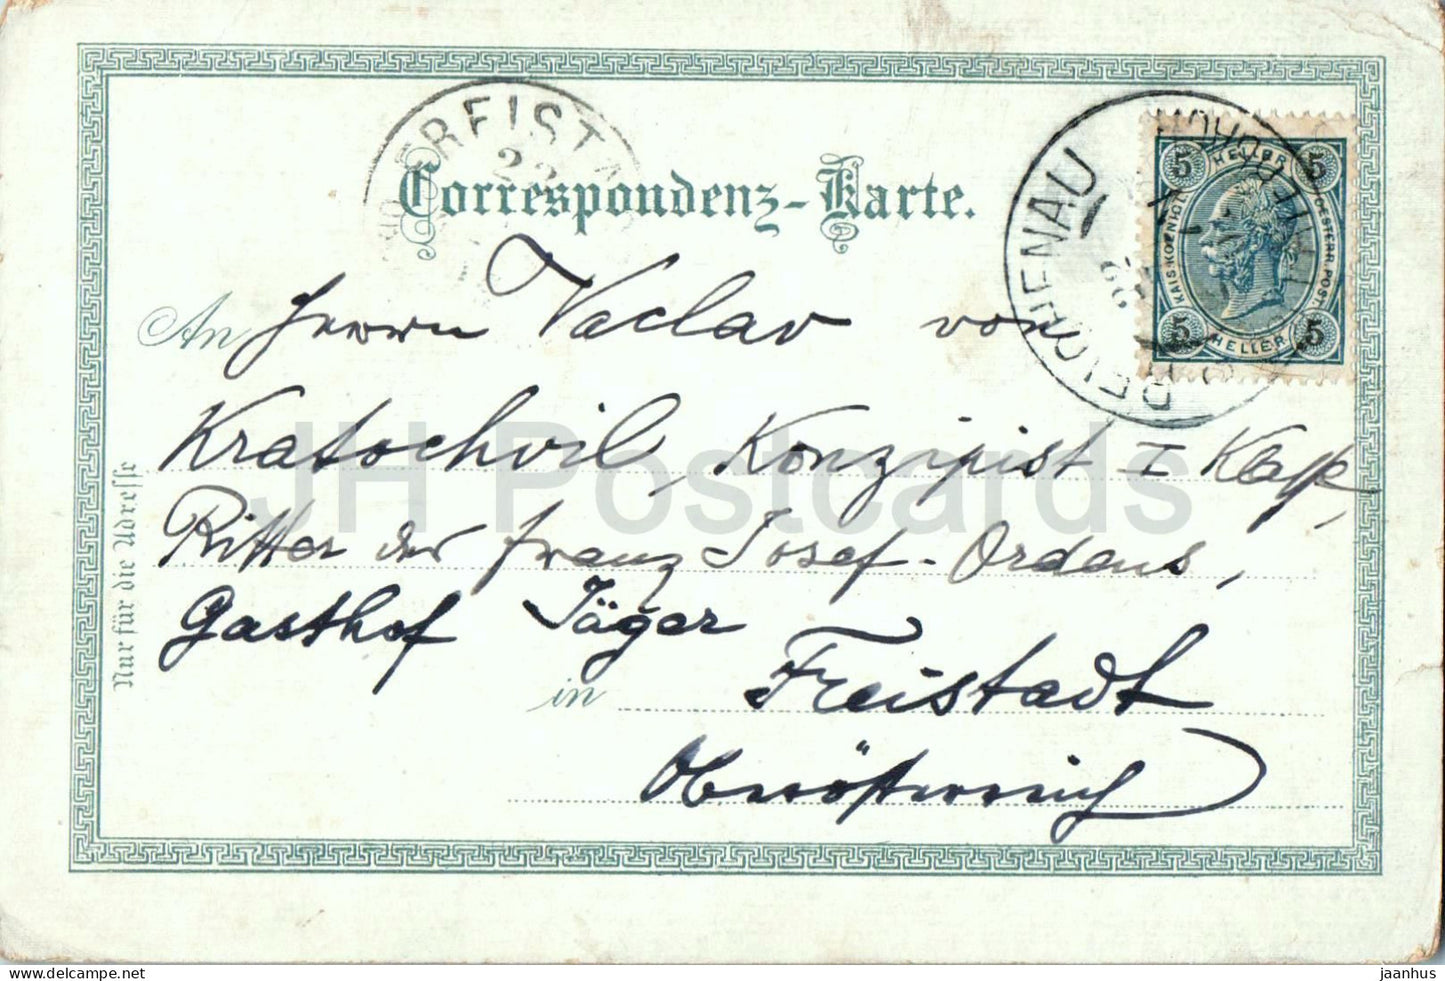 FREISTA
22
Correspondenz-Karte.
5 HELLER 5
KAIS.KOENIGL. OESTERR.POST.
5 HELLER 5
REICHENAU
An Herrn Vaclav von
Kratochvil, Konzipist I Klasse,
Ritter des Franz Josef-Ordens,
Gasthof Jäger
in Freistadt
Oberösterreich
Nur für die Adresse
JH Postcards
hipmarket.com
jaanhus